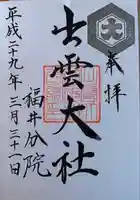 奉拝
出雲大社
福井分院
平成二十九年三月三十一日